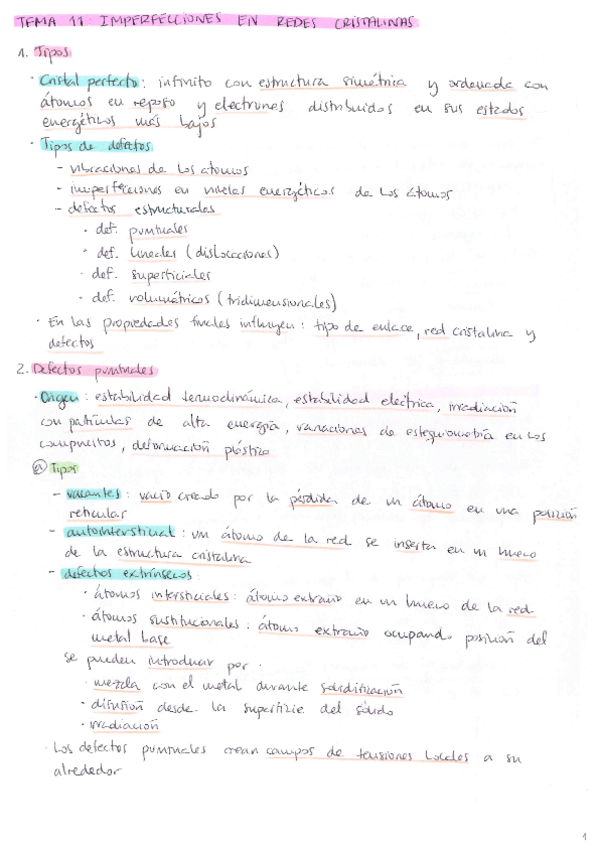 TEMA 11. IMPERFECCIONES EN REDES CRISTALINAS
1. Tipos
· Cristal perfecto: infinito con estructura simétrica y ordenada con
átomos en reposo y electrones distribuidos en sus estados
energéticos más bajos
· Tipos de defectos
- vibraciones de los átomos
- imperfecciones en niveles energéticos de los átomos
- defectos estructurales
· def. puntuales
· def. lineales (dislocaciones)
· def. superficiales
· def. volumétricos (tridimensionales)
· En las propiedades finales influyen: tipo de enlace, red cristalina y
defectos
2. Defectos puntuales
· Origen: estabilidad termodinámica, estabilidad electrica, irradiación
con partículas de alta energía, variaciones de estequiometría en los
compuestos, deformación plástica
a) Tipos
- vacantes: vacio creado por la pérdida de un átomo en una posición
reticular
- autointersticial: un átomo de la red se inserta en un hueco
de la estructura cristalina
- defectos extrínsecos:
· átomos intersticiales: átomo extraño en un hueco de la red
· átomos sustitucionales: átomo extraño ocupando posición del
metal base
se pueden introducir por:
· mezcla con el metal durante solidificación
· difusión desde la superficie del sólido
· irradiación
· Los defectos puntuales crean campos de tensiones locales a su
alrededor
1